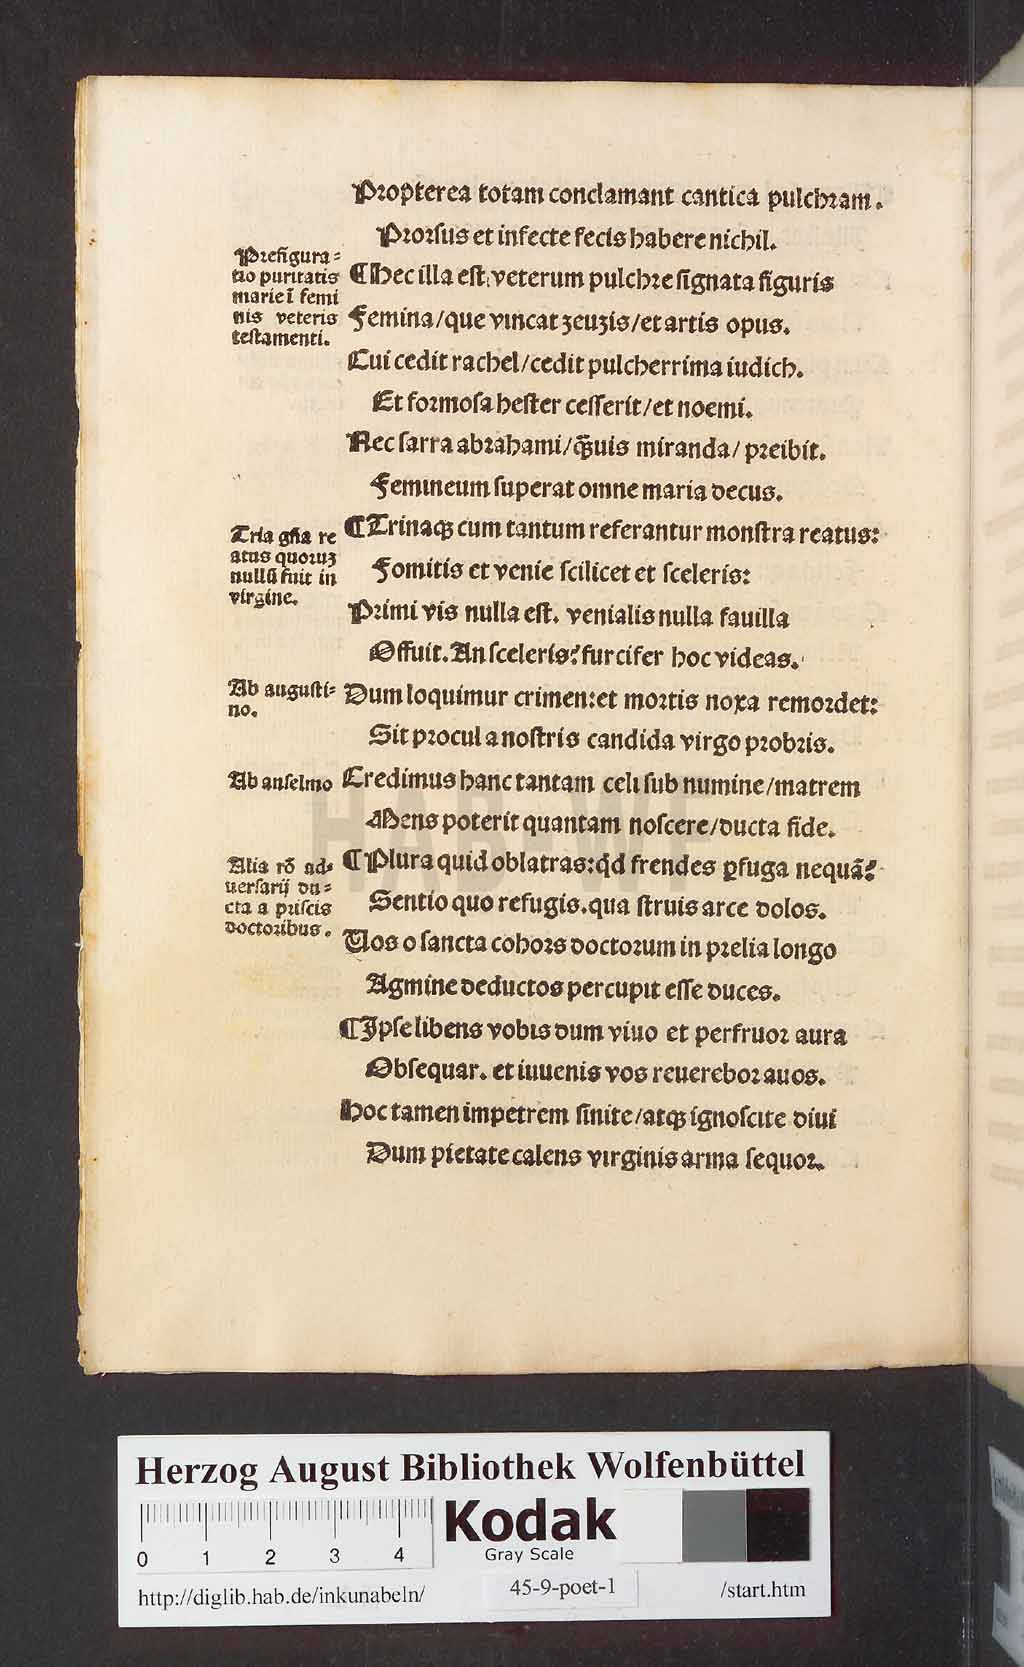 Propterea totam conclamant cantica pulchram.
Prorsus et infecte fecis habere nichil.
Prefigura-
tio puritatis
marie ī femi
nis veteris
testamenti.
¶ Hec illa est, veterum pulchre signata figuris
Femina/que vincat zeuzis/et artis opus.
Cui cedit rachel/cedit pulcherrima iudich.
Et formosa hester cesserit/et noemi.
Nec sarra abrahami/q̄uis miranda/preibit.
Femineum superat omne maria decus.
Tria gn̄a re
atus quoruꝫ
nullū fuit in
virgine.
¶ Trinaqꝫ cum tantum referantur monstra reatus:
Fomitis et venie scilicet et sceleris:
Primi vis nulla est. venialis nulla fauilla
Offuit. An sceleris? furcifer hoc videas.
Ab augusti-
no.
Dum loquimur crimen: et mortis noxa remordet:
Sit procul a nostris candida virgo probris.
Ab anselmo
Credimus hanc tantam celi sub numine/matrem
Mens poterit quantam noscere/ducta fide.
Alia rō ad-
uersarij du-
cta a priscis
doctoribus.
¶ Plura quid oblatras: qd frendes ꝑfuga nequā?
Sentio quo refugis. qua struis arce dolos.
Uos o sancta cohors doctorum in prelia longo
Agmine deductos percupit esse duces.
¶ Ipse libens vobis dum viuo et perfruor aura
Obsequar. et iuuenis vos reuerebor auos.
Hoc tamen impetrem sinite/atqꝫ ignoscite diui
Dum pietate calens virginis arma sequor.
HAB WF
Herzog August Bibliothek Wolfenbüttel
0 1 2 3 4
Kodak
Gray Scale
http://diglib.hab.de/inkunabeln/ 45-9-poet-1 /start.htm